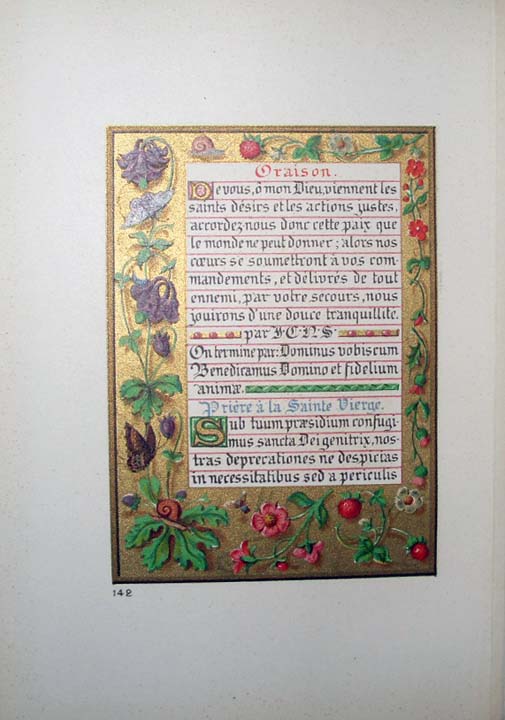 Oraison.
De vous, ô mon Dieu, viennent les
saints désirs et les actions justes,
accordez nous donc cette paix que
le monde ne peut donner; alors nos
cœurs se soumettront à vos com
mandements, et délivrés de tout
ennemi, par votre secours, nous
jouirons d'une douce tranquillité.
par J.C.N.S.
On termine par: Dominus vobiscum
Benedicamus Domino et fidelium
animæ.
Prière à la Sainte Vierge.
Sub tuum præsidium confugi
mus sancta Dei genitrix, nos-
tras deprecationes ne despicias
in necessitatibus sed a periculis
142